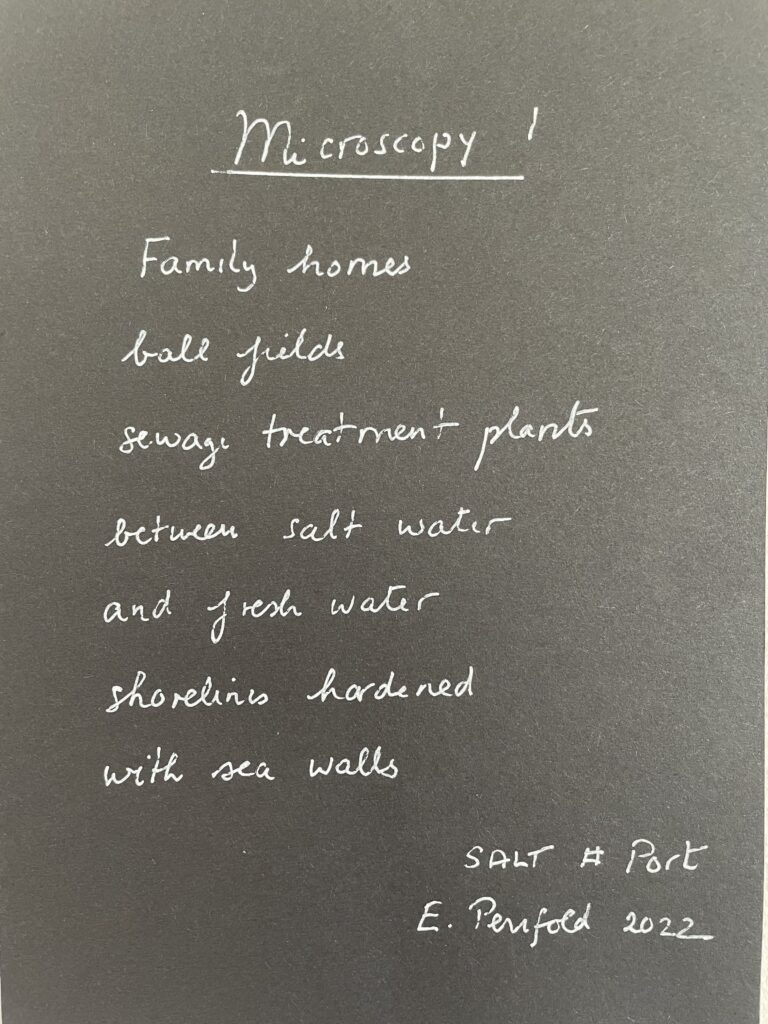 Microscopy 1
Family homes
ball fields
sewage treatment plants
between salt water
and fresh water
shorelines hardened
with sea walls
SALT # Port
E. Penfold 2022